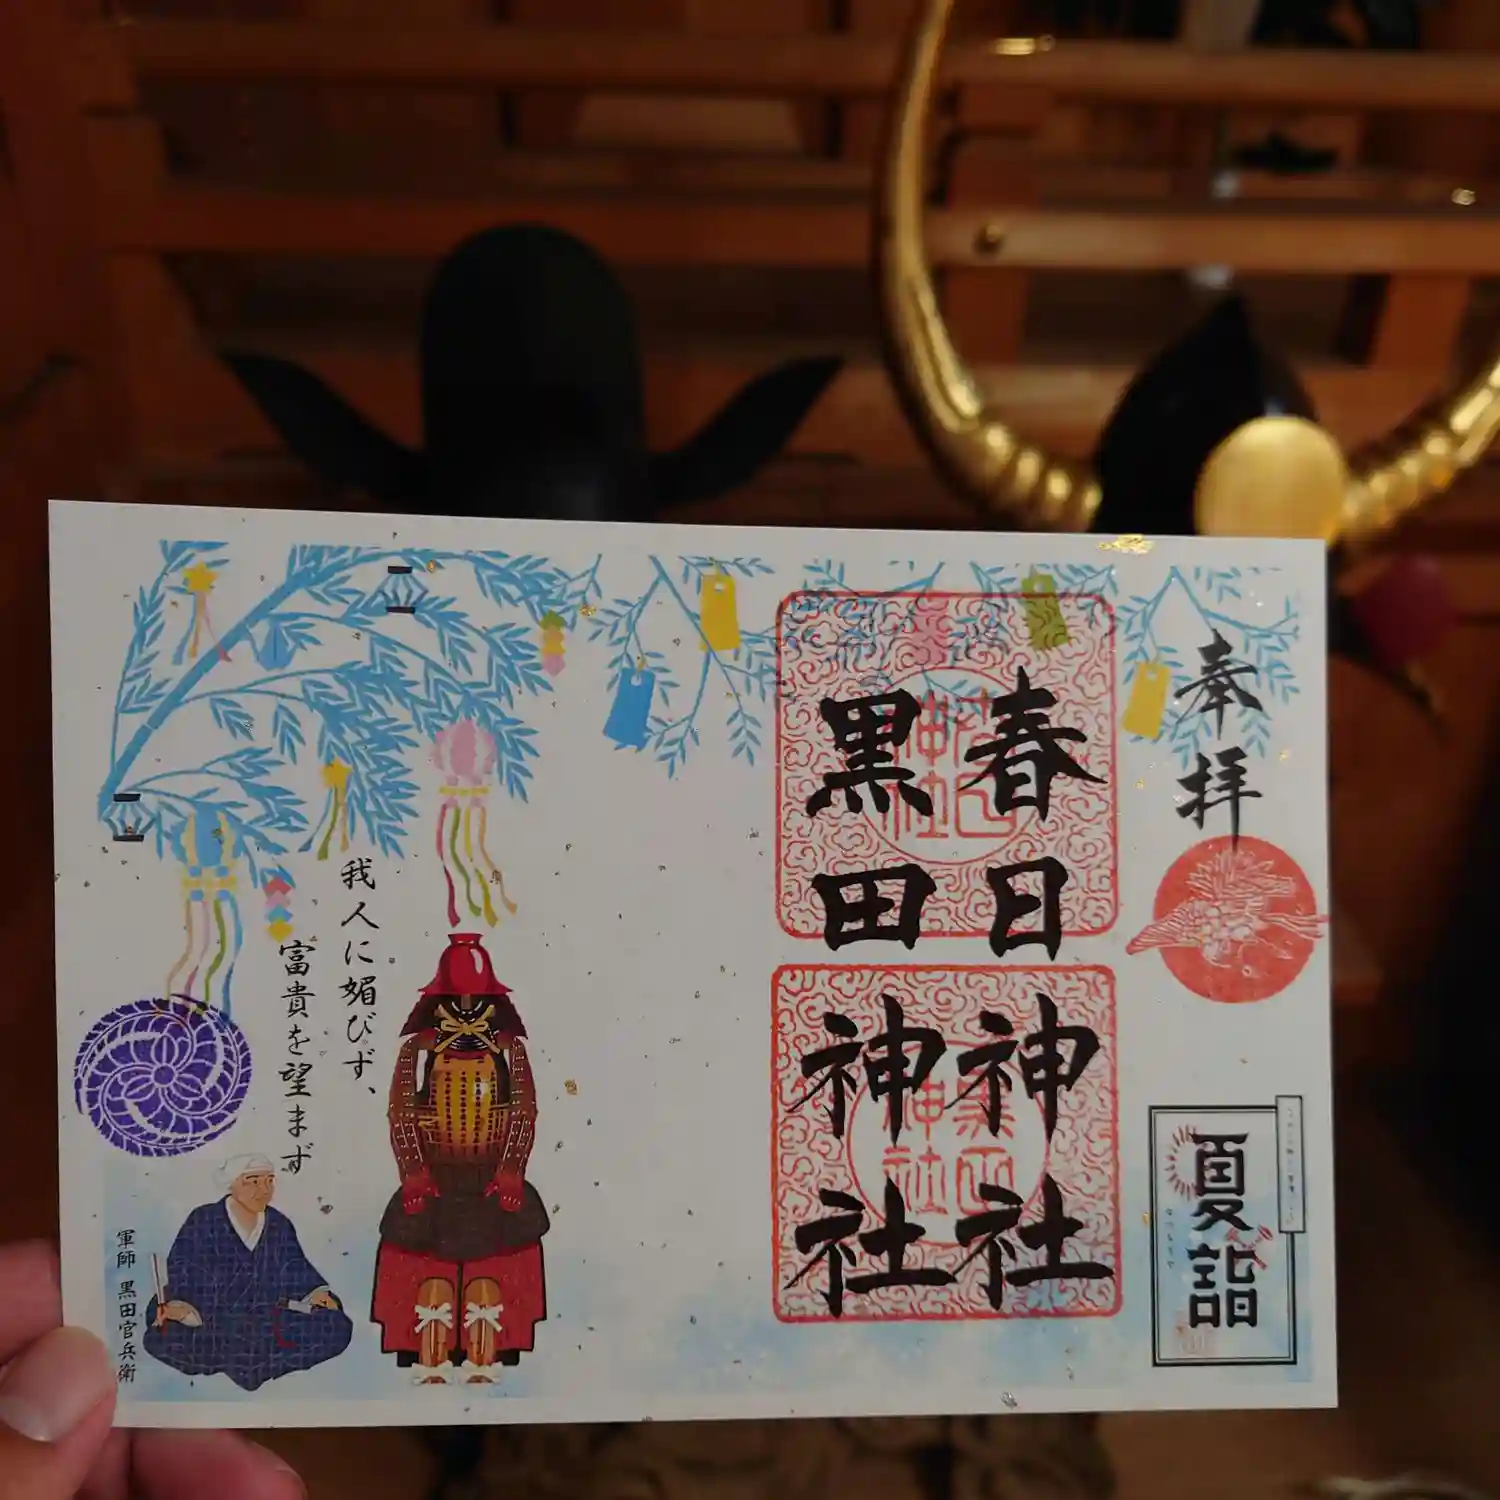 奉拝
春日神社
黒田神社
夏詣
我人に媚びず、
富貴を望まず
軍師 黒田官兵衛